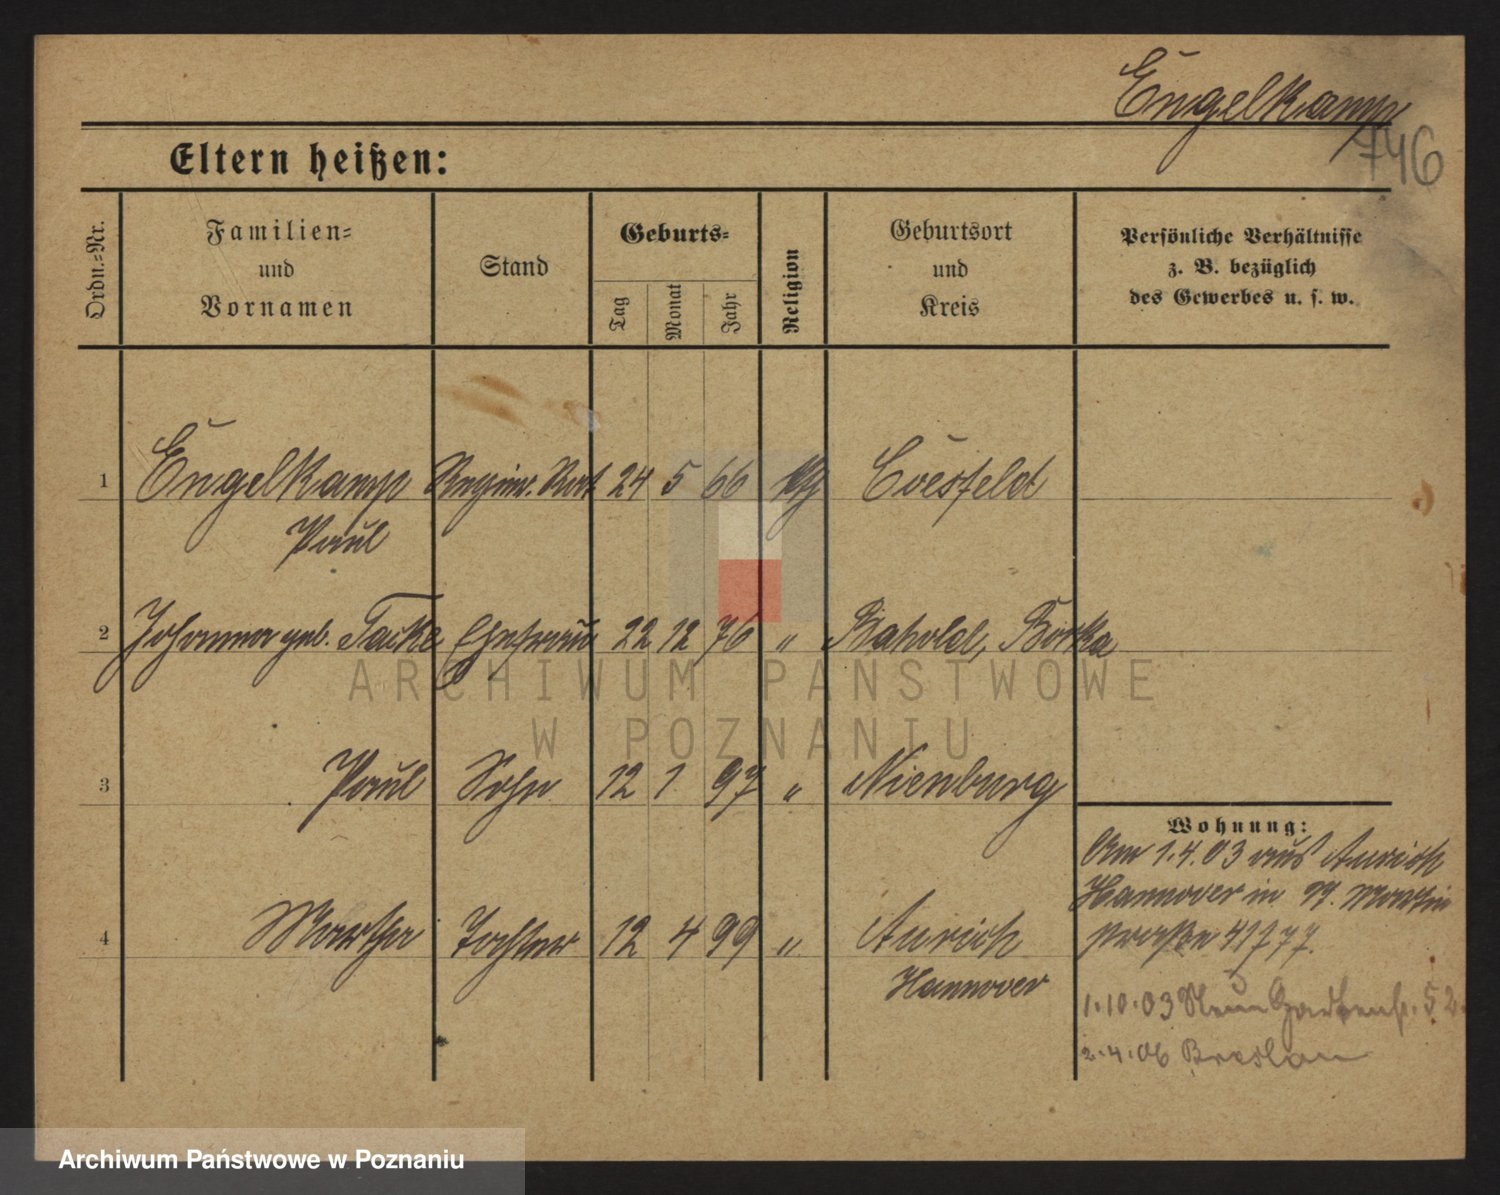 Engelkamp
746
Eltern heißen:
Ordn.-Nr.
Familien-
und
Vornamen
Stand
Geburts-
Tag
Monat
Jahr
Religion
Geburtsort
und
Kreis
Persönliche Verhältnisse
z. B. bezüglich
des Gewerbes u. s. w.
1 Engelkamp 24 5 66 Coesfeld
Paul
2 Johanna geb. Tacke Ehefrau 22 12 76 " Borka
ARCHIWUM PAŃSTWOWE
W POZNANIU
3 Paul Sohn 12 1 97 " Nienburg
Wohnung:
Am 1.4.03 aus Aurich
Hannover in Martin
straße 41
4 Martha Tochter 12 4 99 " Aurich
Hannover
1.10.03 Neue Gartenstr. 52.
2.4.06 Breslau
Archiwum Państwowe w Poznaniu